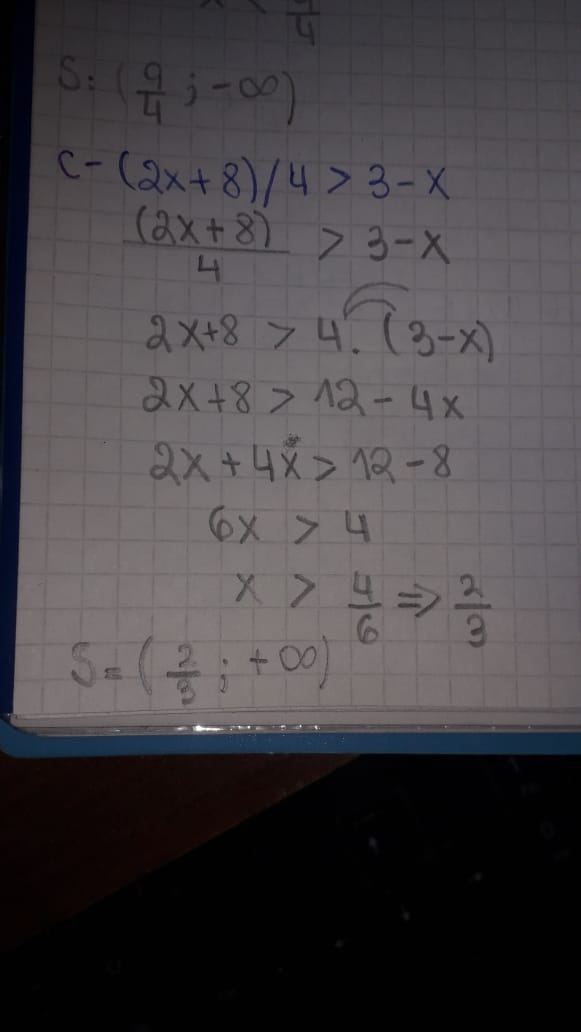 S: (9/4 ; -∞)
C- (2x+8)/4 > 3-x
(2x+8)/4 > 3-x
2x+8 > 4. (3-x)
2x+8 > 12-4x
2x+4x > 12-8
6x > 4
x > 4/6 => 2/3
S= (2/3 ; +∞)